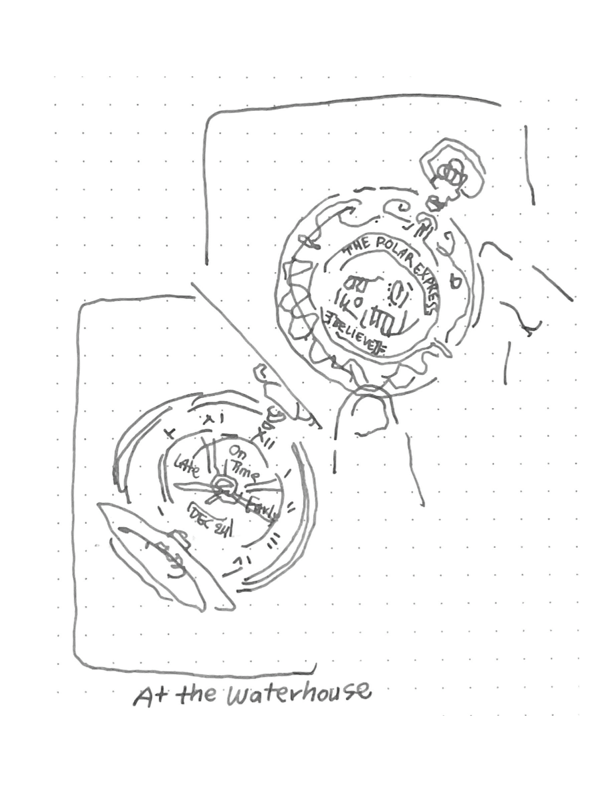 THE POLAR EXPRESS
BELIEVE
XI
XII
X
On
Time
Late
Early
DEC 24
II
III
At the waterhouse